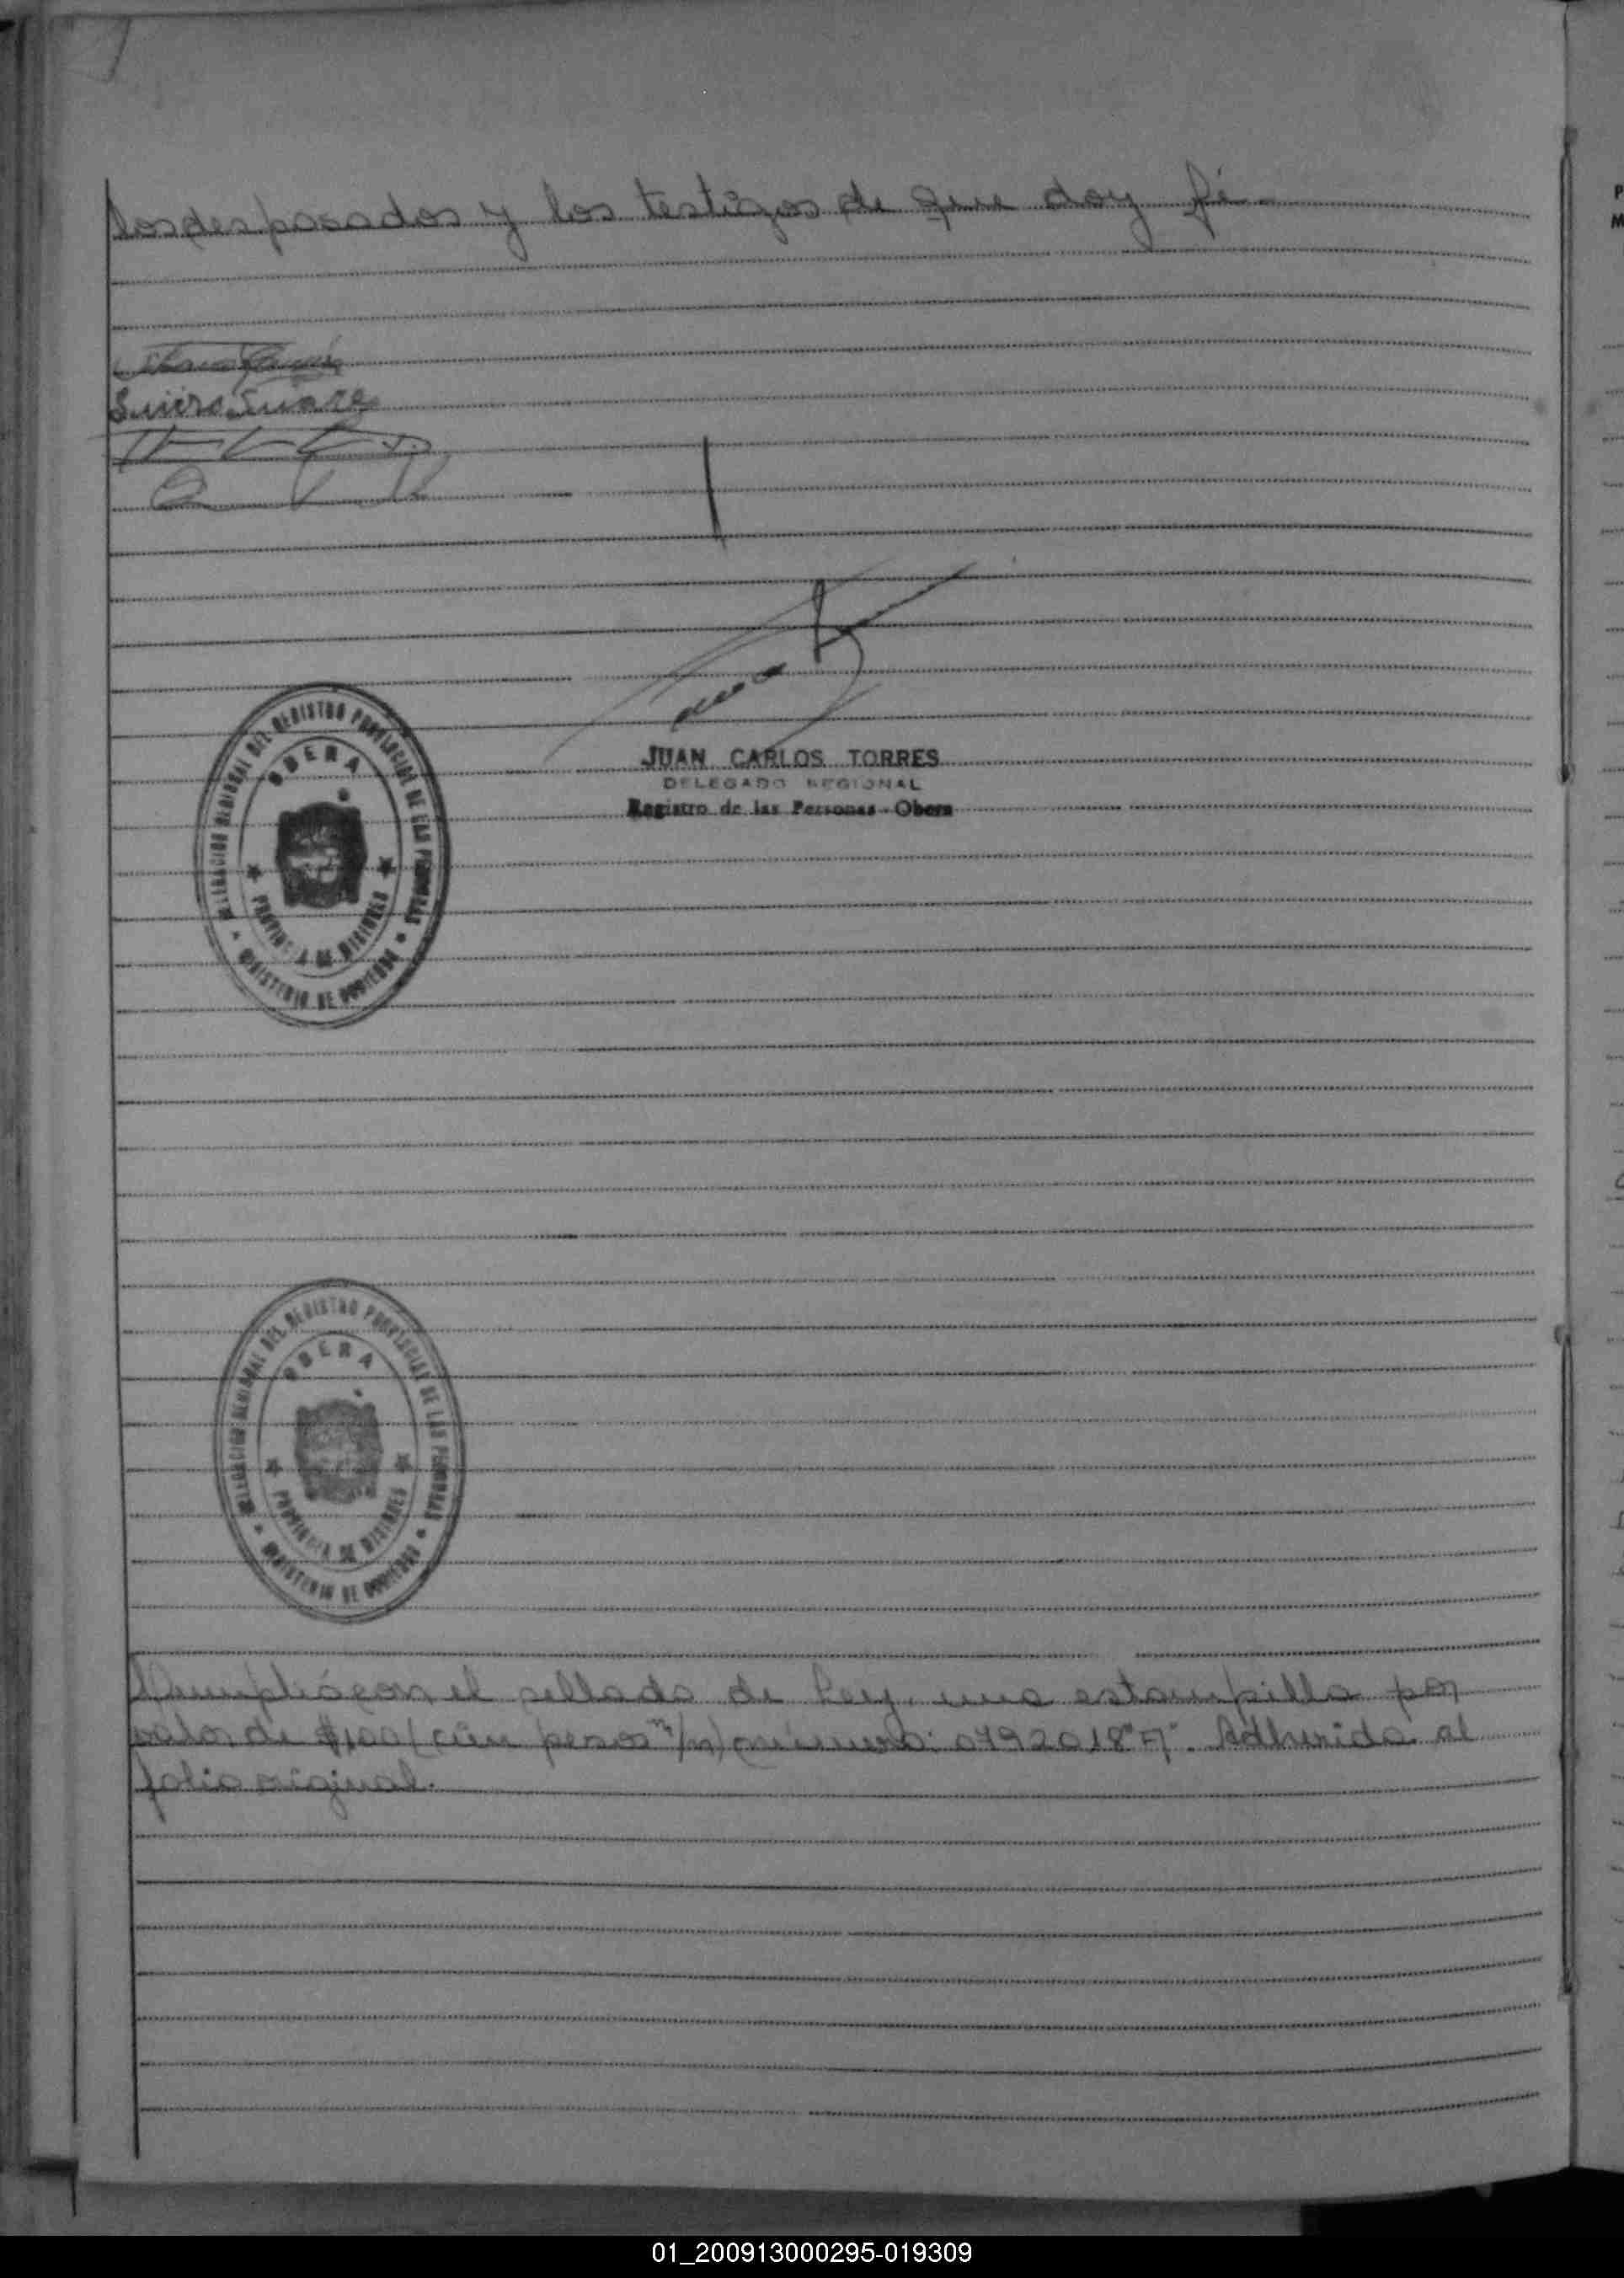 los desposados y los testigos de que doy fé.
Suárez
JUAN CARLOS TORRES
DELEGADO REGIONAL
Registro de las Personas - Obera
DELEGACION REGIONAL DEL REGISTRO PROVINCIAL DE LAS PERSONAS
OBERA
PROVINCIA DE MISIONES
MINISTERIO DE GOBIERNO
DELEGACION REGIONAL DEL REGISTRO PROVINCIAL DE LAS PERSONAS
OBERA
PROVINCIA DE MISIONES
MINISTERIO DE GOBIERNO
Cumplió con el sellado de Ley, una estampilla por
valor de $100 (cien pesos m/n) número: 0792018"A". Adherida al
folio original.
P
M
01_200913000295-019309